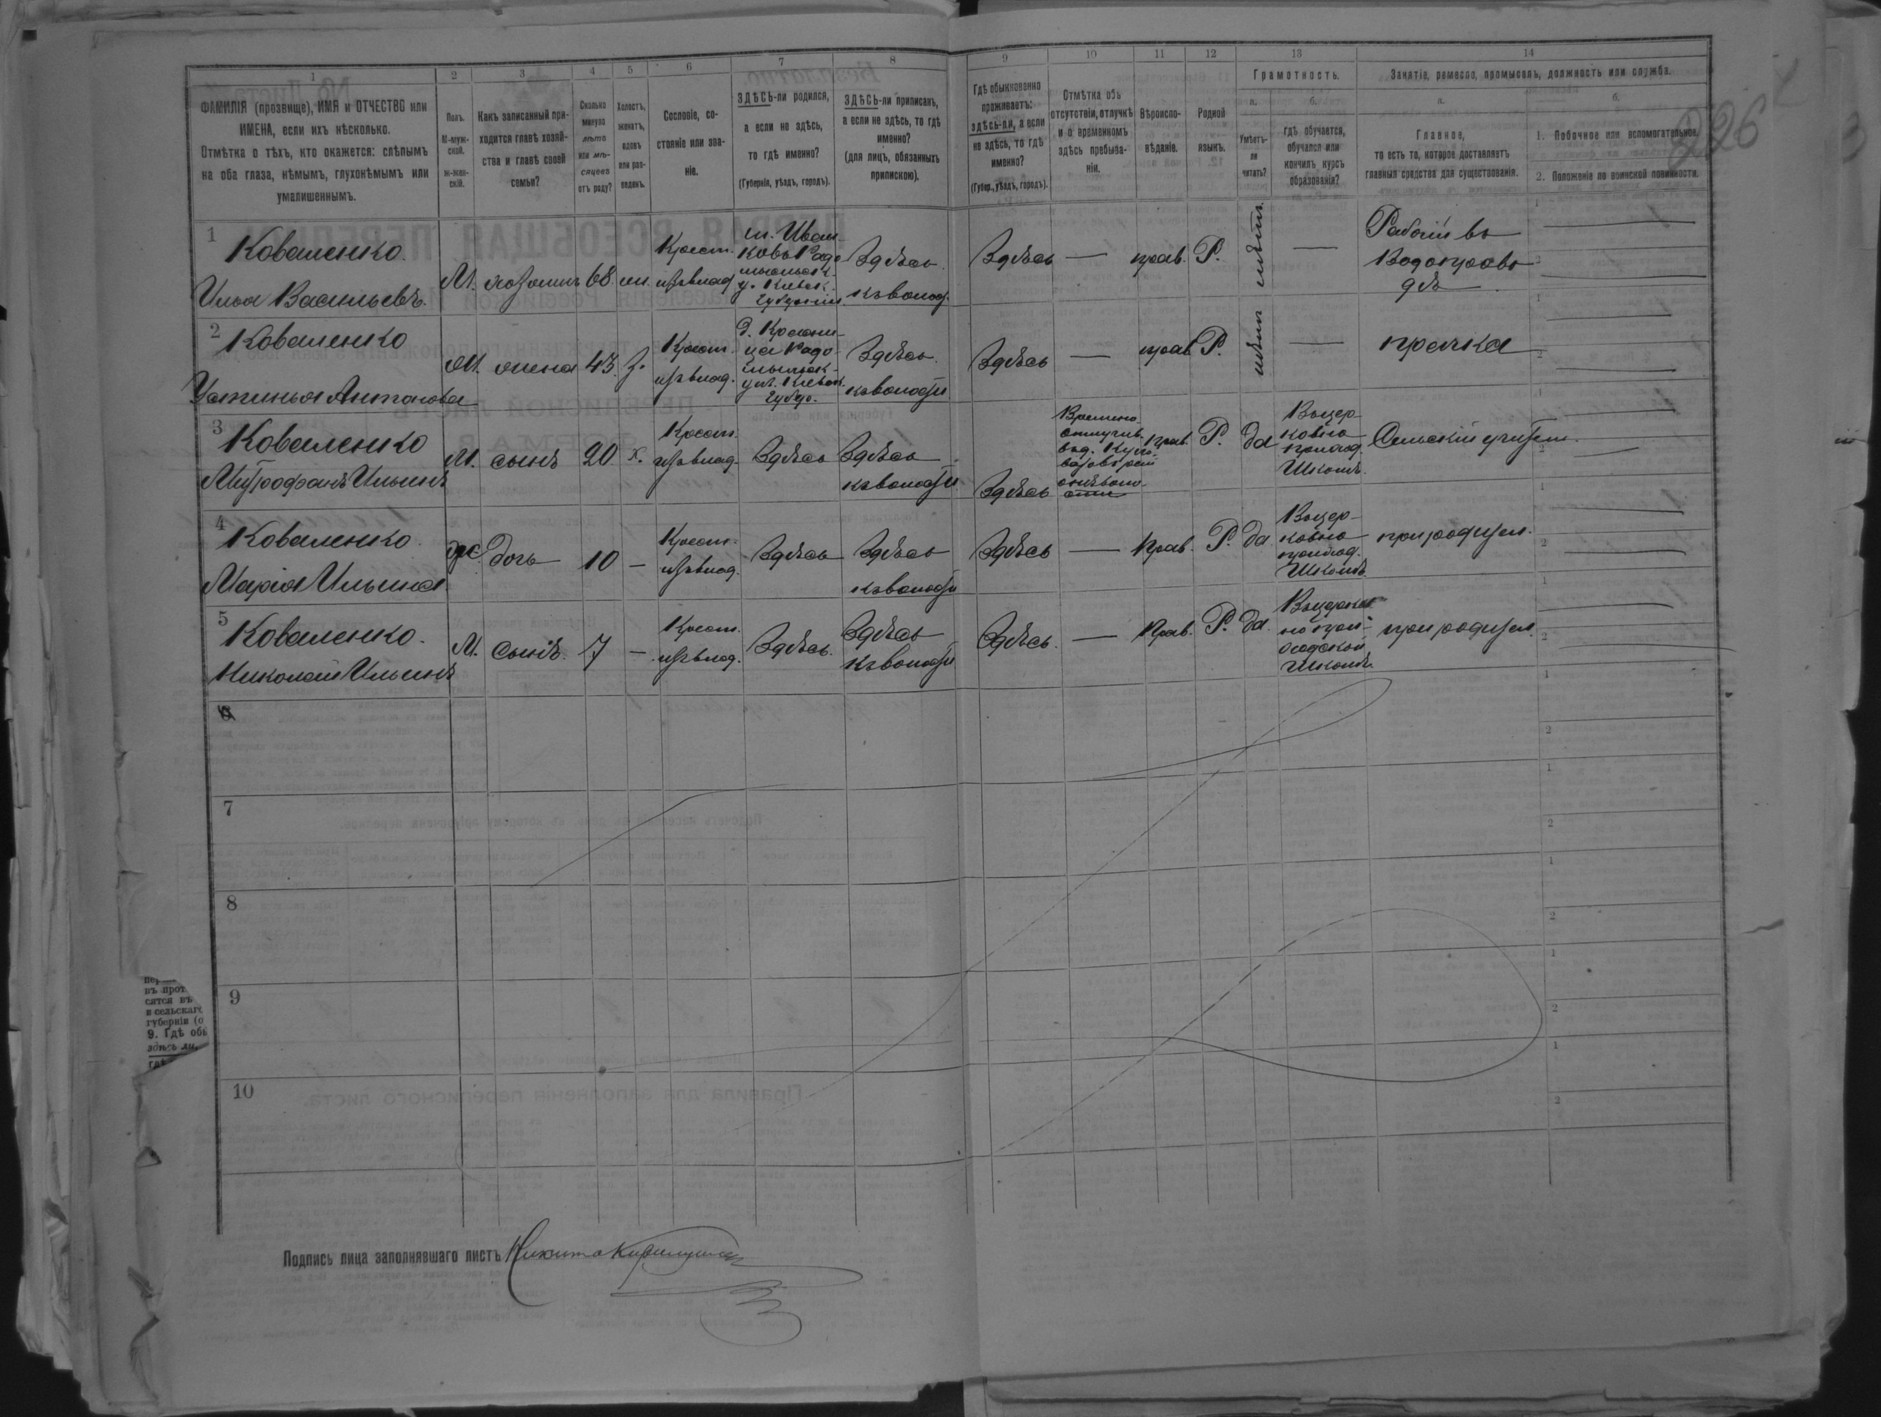 1 2 3 4 5 6 7 8 9 10 11 12 13 14
ФАМИЛІЯ (прозвище), ИМЯ и ОТЧЕСТВО или
ИМЕНА, если ихъ нѣсколько.
Отмѣтка о тѣхъ, кто окажется: слѣпымъ
на оба глаза, нѣмымъ, глухонѣмымъ или
умалишеннымъ.
Полъ.
М-муж-
ской.
ж-жен-
скій.
Какъ записанный при-
ходится главѣ хозяй-
ства и главѣ своей
семьи?
Сколько
минуло
лѣтъ
или мѣ-
сяцевъ
отъ роду?
Холостъ,
женатъ,
вдовъ
или раз-
веденъ.
Сословіе, со-
стояніе или зва-
ніе.
ЗДѢСЬ-ли родился,
а если не здѣсь,
то гдѣ именно?
(Губернія, уѣздъ, городъ).
ЗДѢСЬ-ли приписанъ,
а если не здѣсь, то гдѣ
именно?
(для лицъ, обязанныхъ
припискою).
Гдѣ обыкновенно
проживаетъ:
здѣсь-ли, а если
не здѣсь, то гдѣ
именно?
(Губер., уѣздъ, городъ).
Отмѣтка объ
отсутствіи, отлучкѣ
и о временномъ
здѣсь пребыва-
ніи.
Вѣроиспо-
вѣданіе.
Родной
языкъ.
Грамотность.
а.
Умѣетъ-
ли
читать?
б.
Гдѣ обучается,
обучался или
кончилъ курсъ
образованія?
Занятіе, ремесло, промыселъ, должность или служба.
а.
Главное,
то есть то, которое доставляетъ
главныя средства для существованія.
б.
1. Побочное или вспомогательное.
2. Положеніе по воинской повинности.
226
1 Коваленко
Илья Васильевъ
М. хозяинъ 68 жен.
Крест.
изъ влад.
м. Иван
ковъ Радо
мысльск.
у. Кіевск.
губерніи
Здѣсь
къ волос.
Здѣсь — прав. Р.
Рабочій въ
2 Коваленко
Устинья Антонова
жена 43 з.
Крест.
изъ влад.
Радо
мысльск.
у. Кіевск.
губер.
Здѣсь
къ волости
Здѣсь — прав. Р. — прачка
3 Коваленко
Митрофанъ Ильинъ
М. сынъ 20 х.
Крест.
изъ влад.
Здѣсь
Здѣсь
къ волости
Здѣсь
Временно
отлучив.
прав. Р. да
Въ цер-
ковно
приход.
Школѣ
Сельскій учитель
4 Коваленко
Марія Ильина
Ж. дочь 10 —
Крест.
изъ влад.
Здѣсь
Здѣсь
къ волости
Здѣсь — Прав. Р. да
Въ цер-
ковно
приход.
Школѣ
при родител.
5 Коваленко.
Николай Ильинъ
М. Сынъ 7 —
Крест.
изъ влад.
Здѣсь.
Здѣсь
къ волости
Здѣсь. — Прав. Р. да
Въ церков
но при-
ходской
Школѣ
при родител.
6
7
8
9
10
въ прот
сятся въ
и сельскаго
губерніи (о
9. Гдѣ обы
здѣсь ли,
Подпись лица заполнявшаго листъ Никита